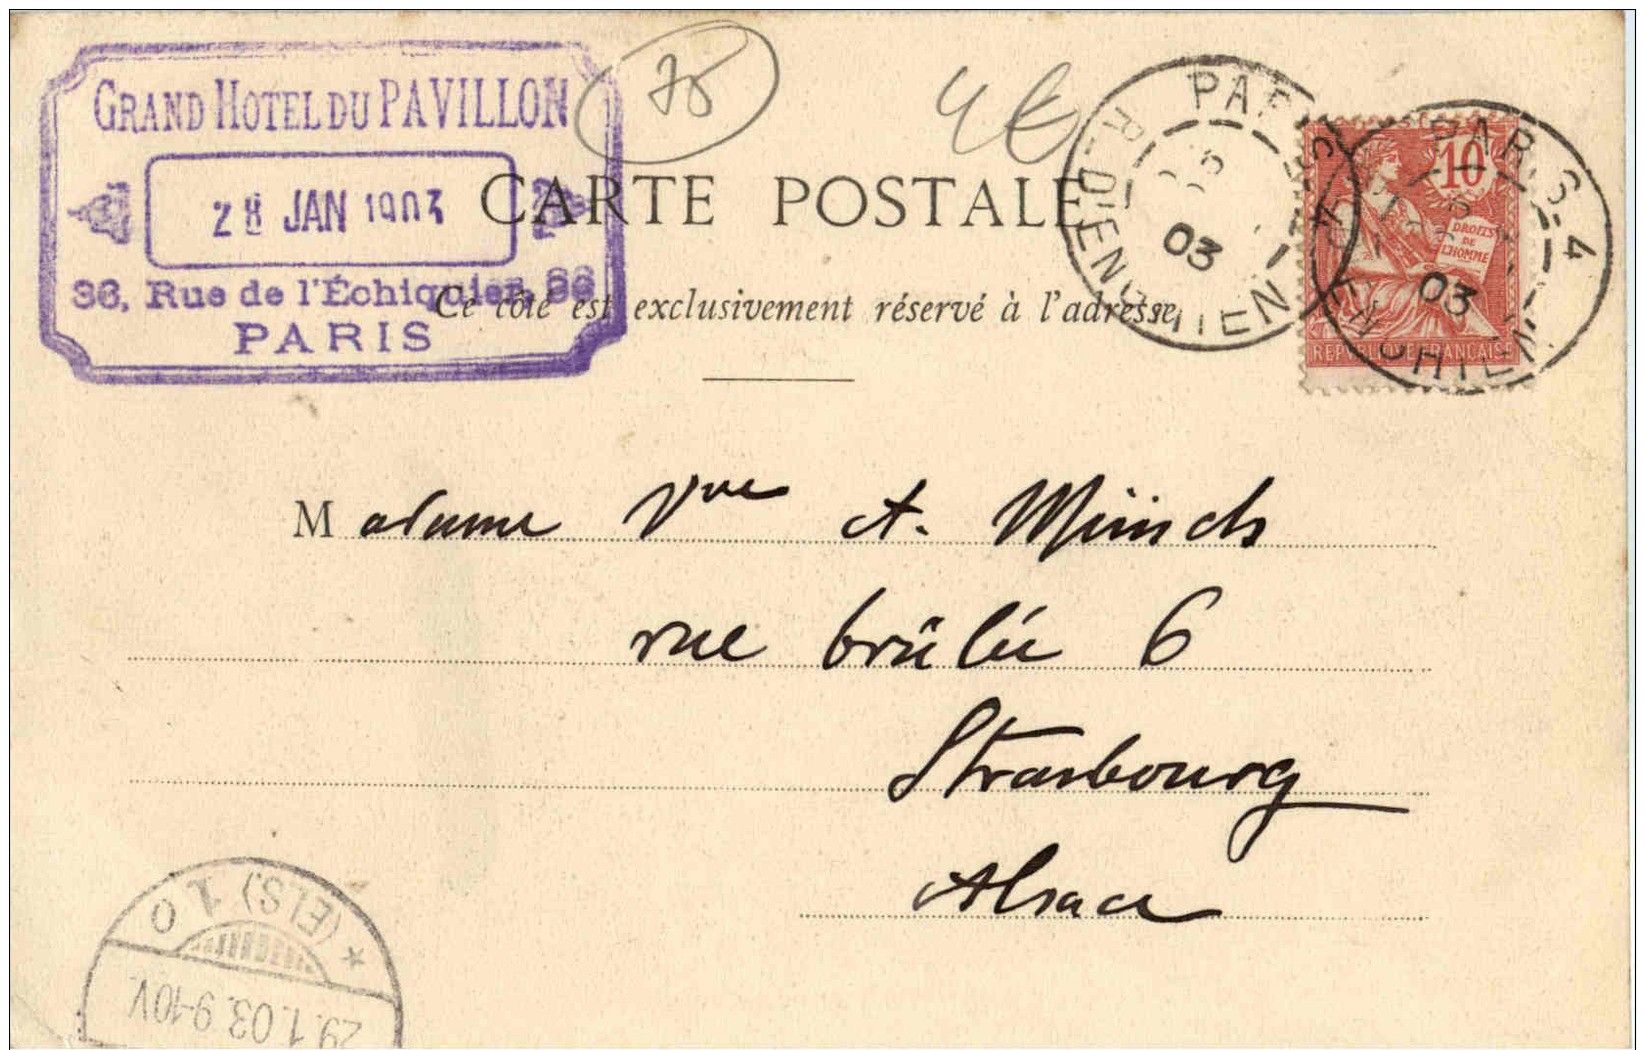 GRAND HOTEL DU PAVILLON
28 JAN 1903
36, Rue de l'Échiquier, 36
PARIS
75
4€
CARTE POSTALE
Ce côté est exclusivement réservé à l'adresse
PARIS 4
R. D'ENGHIEN
03
PARIS-4
R. D'ENGHIEN
03
10
DROITS
DE
L'HOMME
REPUBLIQUE FRANÇAISE
Madame Vve A. Münch
rue brûlée 6
Strasbourg
Alsace
* (ELS) 10
29.1.03. 9-10V.